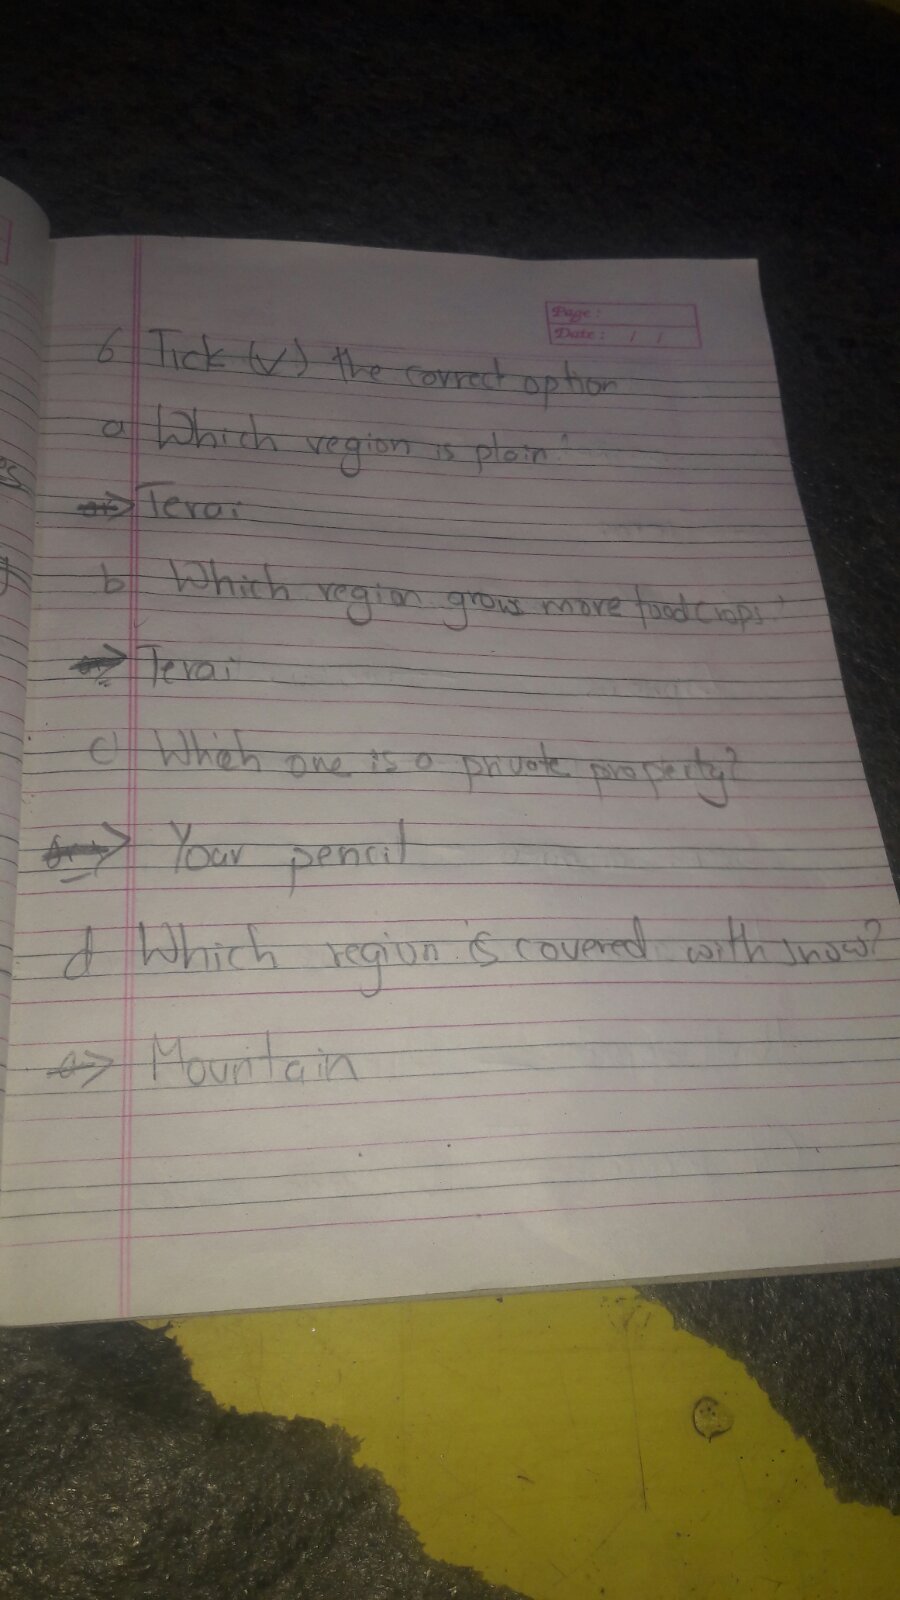 Page:
Date: / /
6 Tick (✓) the correct option
a Which region is plain?
⇒ Terai
b Which region grows more foodcrops?
⇒ Terai
c) Which one is a private property?
⇒ Your pencil
d Which region is covered with snow?
⇒ Mountain